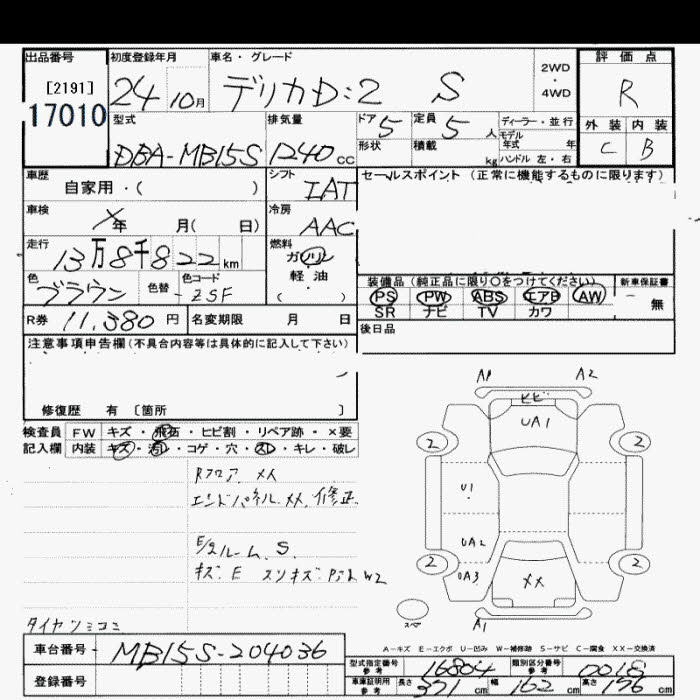 出品番号 初度登録年月 車名・グレード 評価点
[2191] 24 10月 デリカD:2 S 2WD・4WD R
17010 型式 排気量 ドア 定員 ディーラー・並行 外装 内装
DBA-MB15S 1240cc 5 5人 モデル年式 年 C B
形状 積載 kg ハンドル 左・右
車歴 シフト セールスポイント (正常に機能するものに限ります)
自家用・( ) IAT
車検 冷房
年 月( 日) AAC
走行 燃料
13万8千822km ガソリン
色 色替 色コード 軽・油 装備品(純正品に限り○をつけてください) 新車保証書
ブラウン -ZSF ( ) PS PW ABS エアB AW - 無
R券 11,380円 名変期限 月 日 SR ナビ TV カワ
注意事項申告欄(不具合内容等は具体的に記入して下さい) 後日品
修復歴 有 [箇所 ]
検査員 FW キズ・飛石・ヒビ割・リペア跡・×要
記入欄 内装 キズ・汚レ・コゲ・穴・スレ・キレ・破レ
A1 A2
ヒビ
UA1
2 2
Rフロア XX
エンドパネル XX 修正
U1
E/gルーム S
UA2
2 2
キズ E スリキズ W2
UA3
XX
A1
タイヤンミコミ
A-キズ E-エクボ U-凹み W-補修跡 S-サビ C-腐食 XX-交換済
車台番号 MB15S-204036
登録番号
型式指定番号 参考 16804 類別区分番号 参考 0018
車庫証明用 参考 長さ 371cm 幅 162cm 高さ 176cm